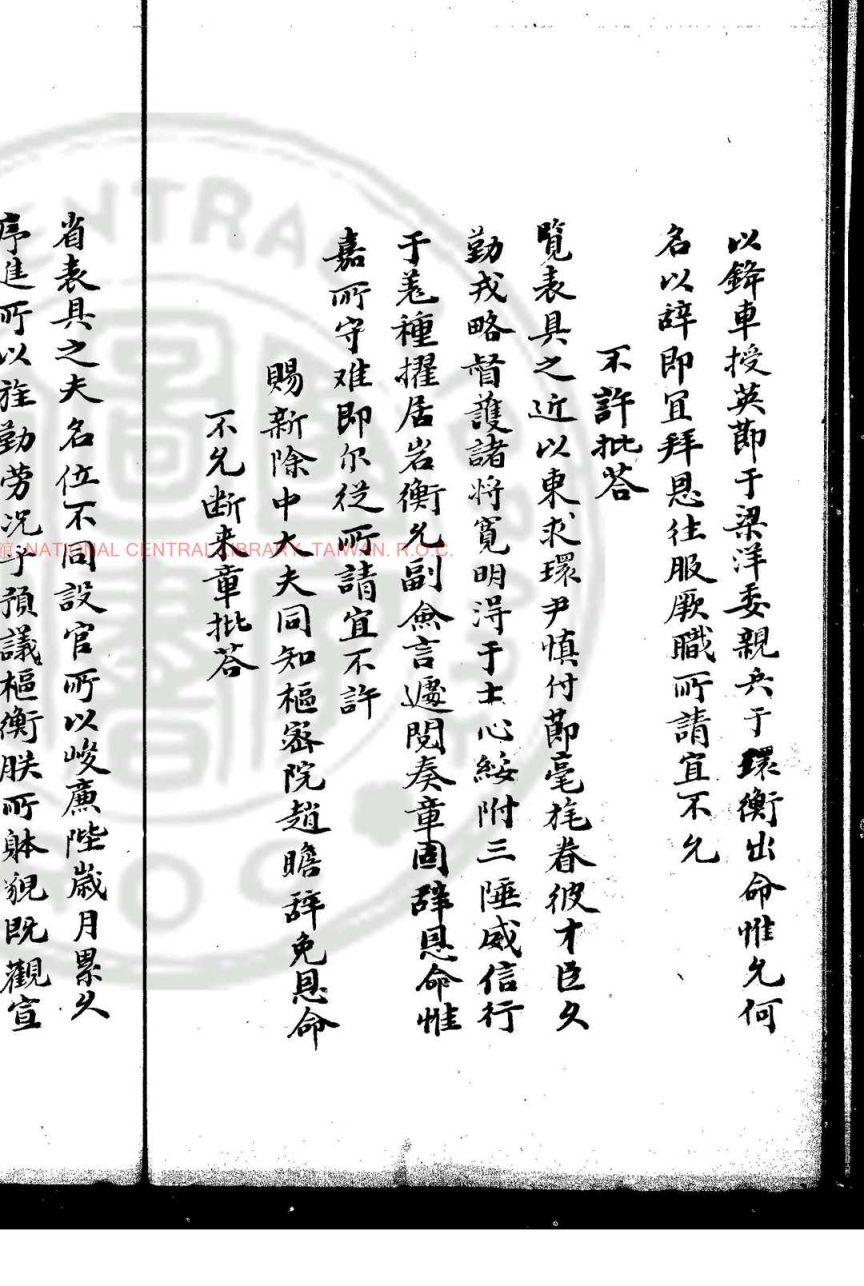 以鋒車授英莭于梁洋委親兵于環衡出命惟允何
名以辝即冝拜恩徃服厥職所請宜不允
不許批荅
覽表具之近以東求環尹慎付莭毫旄眷彼才臣久
勤戎略督護諸将寛明淂于士心綏附三陲威信行
于羗種擢居岩衡允副僉言遽閱奏章固辝恩命惟
嘉所守难即尔從所請宜不許
賜新除中大夫同知樞宻院趙瞻辝免恩命
不允断来章批荅
省表具之夫名位不同設官所以峻廉陛歳月累久
序進所以旌勤劳况于預議樞衡朕所躰貌既觀宣
NATIONAL CENTRAL LIBRARY, TAIWAN. R.O.C.